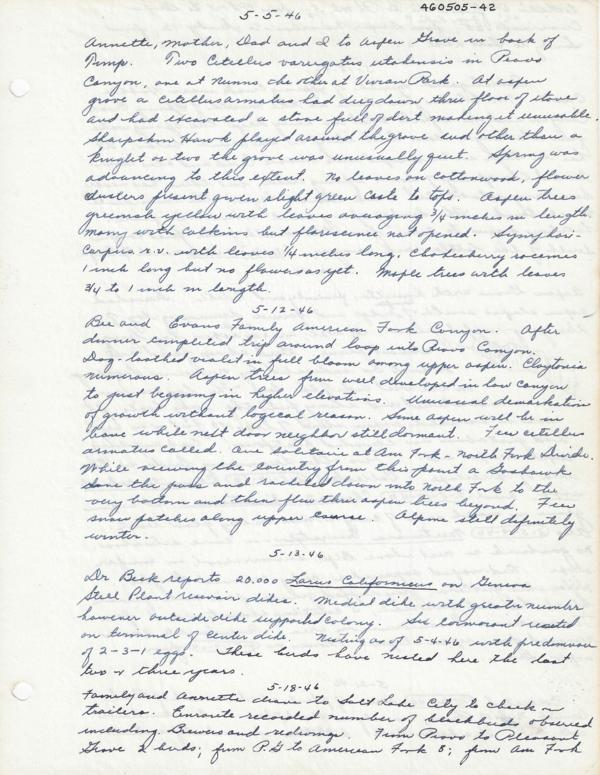 5-5-46
460505-42
Annette, Mother, Dad and I to Aspen Grove in back of
Timp. Two Citellus varregatus utahensis in Provo
Canyon, one at Nunns, the other at Vivian Park. At aspen
grove a citellus armatus had dug down thru floor of stove
and had excavated a stove full of dirt making it unusable.
Sharpshin Hawk played around the grove and other than a
Kinglet or two the grove was unusually quiet. Spring was
advancing to this extent. No leaves on cottonwood, flower
clusters present given slight green caste to tops. Aspen trees
greenish yellow with leaves averaging 3/4 inches in length
many with catkins but florescence not opened. Symphori-
carpus r.v. with leaves 1/4 inches long. Chokecherry racemes
1 inch long but no flowers as yet. Maple trees with leaves
3/4 to 1 inch in length.
5-12-46
Bee and Evans Family American Fork Canyon. After
dinner completed trip around loop into Provo Canyon.
Dog-toothed violet in full bloom among upper aspen. Claytonia
numerous. Aspen trees from well developed in low canyon
to just beginning in higher elevations. Unusual demarkation
of growth without logical reason. Some aspen will be in
leave while next door neighbor still dormant. Few citellus
armatus called. One solitaire at Am Fork - North Fork Divide.
While viewing the country from this point a Goshawk
dove the pass and rocketed down into North Fork to the
very bottom and then flew thru aspen trees beyond. Few
snow patches along upper course. Alpine still definitely
winter.
5-13-46
Dr Beck reports 20,000 Larus Californicus on Geneva
Steel Plant resevoir dikes. Medial dike with greater number
however outside dike supported colony. Six cormorant roosted
on terminal of center dike. Nesting as of 5-4-46 with predominance
of 2-3-1 eggs. These birds have nested here the last
two or three years.
5-18-46
Family and Annette drove to Salt Lake City to check on
trailers. Enroute recorded number of blackbirds observed
including Brewers and redwings. From Provo to Pleasant
Grove 2 birds; from P.G to American Fork 8; from Am Fork